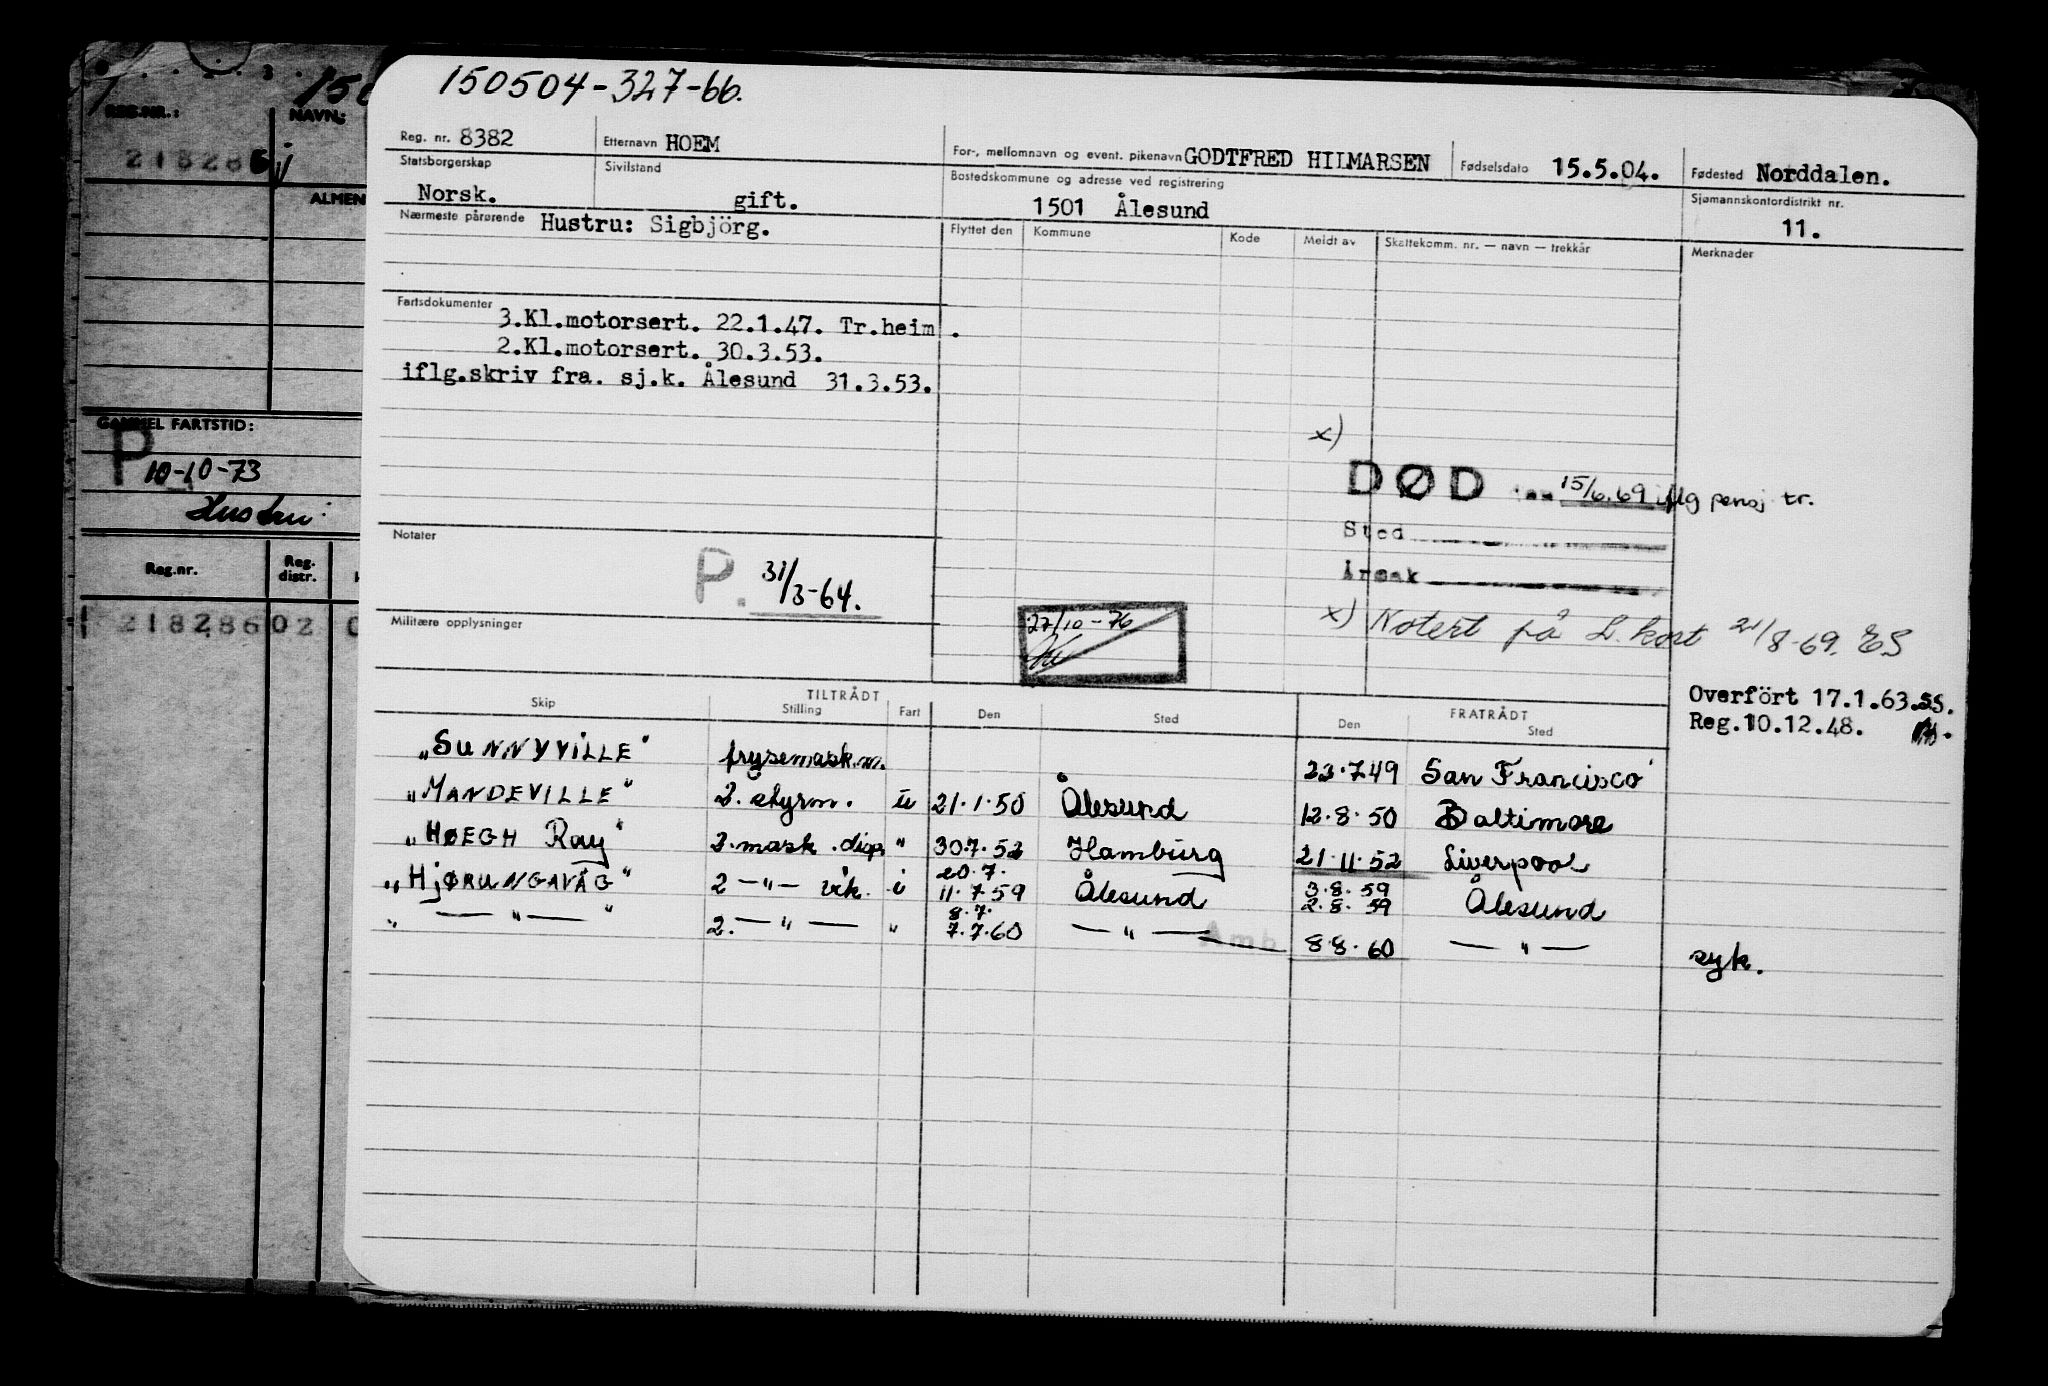 150504-327-66.
Reg. nr. 8382 Etternavn HOEM For-, mellomnavn og event. pikenavn GODTFRED HILMARSEN Fødselsdato 15.5.04. Fødested Norddalen.
Statsborgerskap Norsk. Sivilstand gift. Bostedskommune og adresse ved registrering 1501 Ålesund Sjømannskontordistrikt nr. 11.
Nærmeste pårørende Hustru: Sigbjörg. Flyttet den Kommune Kode Meldt av Skattekomm. nr. — navn — trekkår Merknader
Fartsdokumenter 3.Kl.motorsert. 22.1.47. Tr.heim.
2.Kl.motorsert. 30.3.53.
iflg.skriv fra. sj.k. Ålesund 31.3.53.
x)
DØD 15/6.69 iflg pensj tr.
Sted
Årsak
Notater P. 31/3-64.
x) Notert på L.kort 21/8-69. ES
Militære opplysninger
27/10-76
Overfört 17.1.63.SS.
Reg.10.12.48.
TILTRÅDT FRATRÅDT
Skip Stilling Fart Den Sted Den Sted
"SUNNYVILLE" frysemask.m. 23.7.49 San Francisco
"MANDEVILLE" 2. styrm. u 21.1.50 Ålesund 12.8.50 Baltimore
"HØEGH Ray" 2.mask.disp. " 30.7.52 Hamburg 21.11.52 Liverpool
20.7. 3.8.59
"HJØRUNGAVÅG" 2 —"— vik. i 11.7.59 Ålesund 2.8.59 Ålesund
8.7.
" —"— " 2. —"— " 7.7.60 —"— Amb 8.8.60 —"— syk.
REG.NR.: NAVN:
218286
ALMEN
GAMMEL FARTSTID:
P 10-10-73
Hustru:
Reg.nr. Reg. distr.
218286 02 0